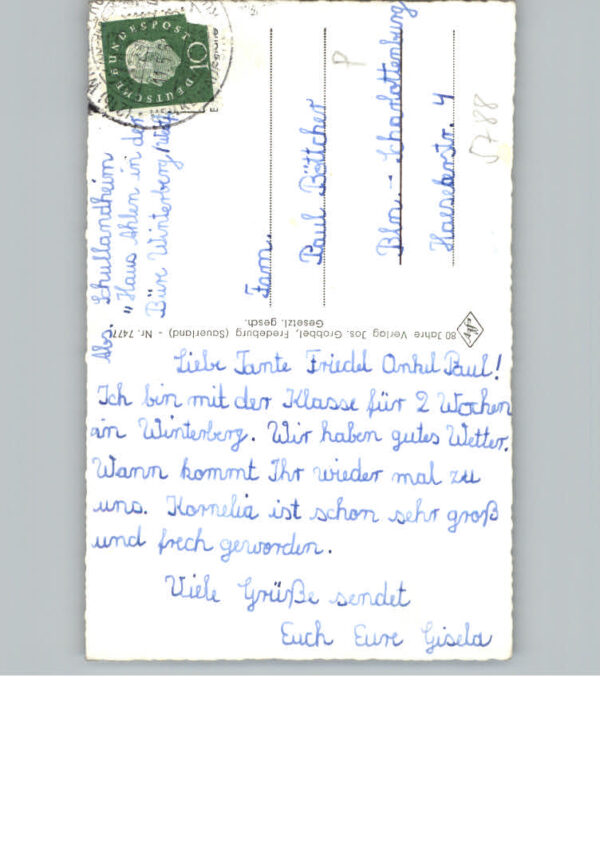 Liebe Tante Friedel Onkel Paul!
Ich bin mit der Klasse für 2 Wochen
in Winterberg. Wir haben gutes Wetter.
Wann kommt Ihr wieder mal zu
uns. Kornelia ist schon sehr groß
und frech geworden.
Viele Grüße sendet
Euch Eure Gisela
Abs. Schullandheim
"Haus Ahlen in der
Büre Winterberg
Fam.
Paul Böttcher
Bln. - Charlottenburg
Haeselerstr. 4
5788
80 Jahre Verlag Jos. Grobbel, Fredeburg (Sauerland) - Nr. 7477
Gesetzl. gesch.
DEUTSCHE BUNDESPOST
10